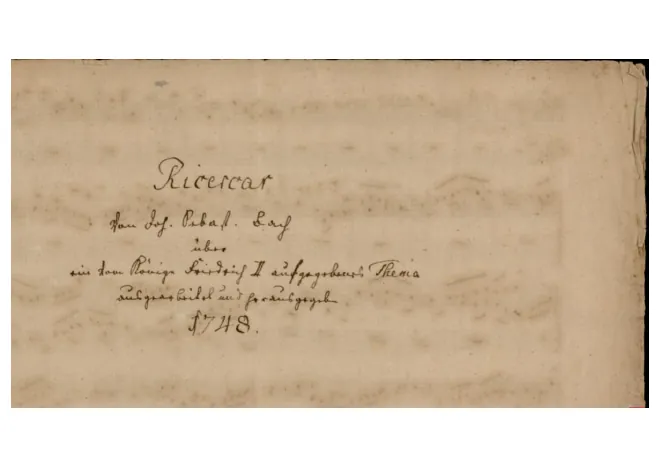 Ricercar
von Joh. Sebast. Bach
über
ein vom Könige Friedrich II aufgegebenes Thema
ausgearbeitet und herausgegeb
1748.